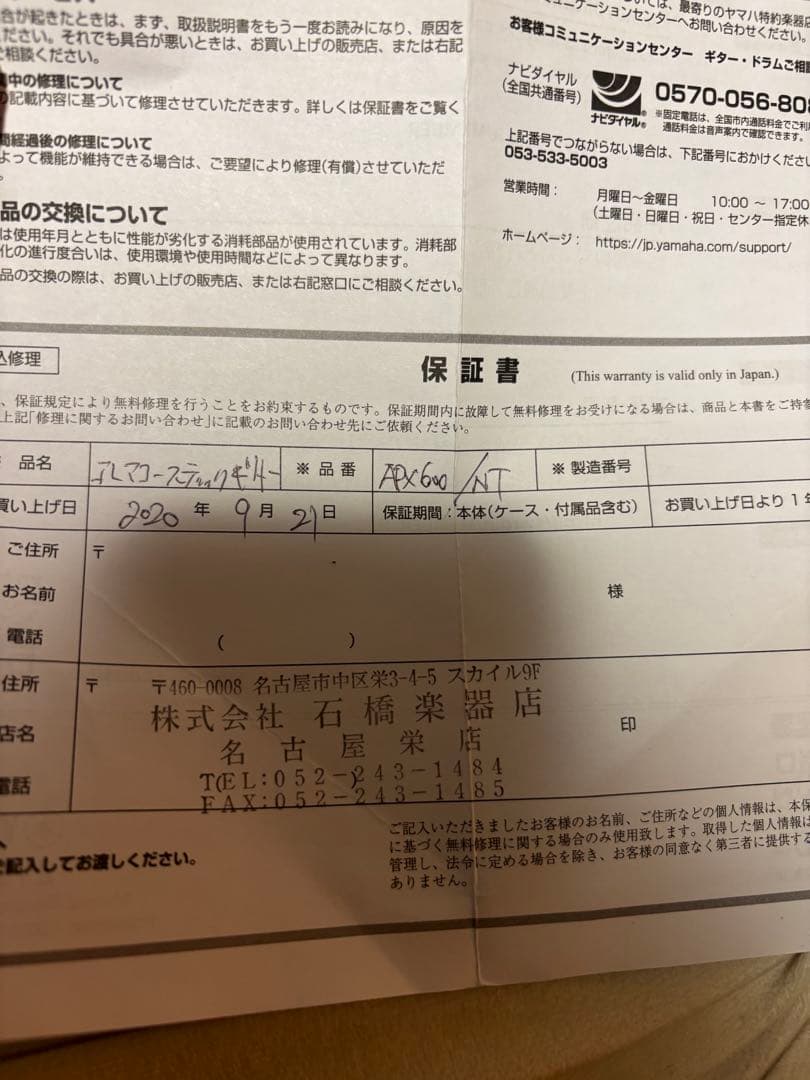 合が起きたときは、まず、取扱説明書をもう一度お読みになり、原因を
ださい。それでも具合が悪いときは、お買い上げの販売店、または右記
ご相談ください。
中の修理について
の記載内容に基づいて修理させていただきます。詳しくは保証書をご覧く
間経過後の修理について
よって機能が維持できる場合は、ご要望により修理(有償)させていただ
。
品の交換について
は使用年月とともに性能が劣化する消耗部品が使用されています。消耗部
化の進行度合いは、使用環境や使用時間などによって異なります。
品の交換の際は、お買い上げの販売店、または右記窓口にご相談ください。
、最寄りのヤマハ特約楽器店
ミュニケーションセンターへお問い合わせください。
お客様コミュニケーションセンター ギター・ドラムご相談
ナビダイヤル
(全国共通番号)
ナビダイヤル®
0570-056-808
※固定電話は、全国市内通話料金でご利
通話料金は音声案内で確認できます。
上記番号でつながらない場合は、下記番号におかけください
053-533-5003
営業時間: 月曜日~金曜日 10:00 ~ 17:00
(土曜日・日曜日・祝日・センター指定休
ホームページ: https://jp.yamaha.com/support/
込修理
保証書 (This warranty is valid only in Japan.)
、保証規定により無料修理を行うことをお約束するものです。保証期間内に故障して無料修理をお受けになる場合は、商品と本書をご持参
上記「修理に関するお問い合わせ」に記載のお問い合わせ先にご依頼ください。
品名 エレアコースティックギター ※品番 APX600/NT ※製造番号
買い上げ日 2020年9月21日 保証期間:本体(ケース・付属品含む) お買い上げ日より1年
ご住所 〒
お名前 様
電話 ( )
住所 〒 〒460-0008 名古屋市中区栄3-4-5 スカイル9F
株式会社 石橋楽器店
店名 名古屋栄店 印
電話 T(EL:052-)243-1484
FAX:052-243-1485
ご記入いただきましたお客様のお名前、ご住所などの個人情報は、本保
に基づく無料修理に関する場合のみ使用致します。取得した個人情報は
管理し、法令に定める場合を除き、お客様の同意なく第三者に提供する
ありません。
ご記入してお渡しください。